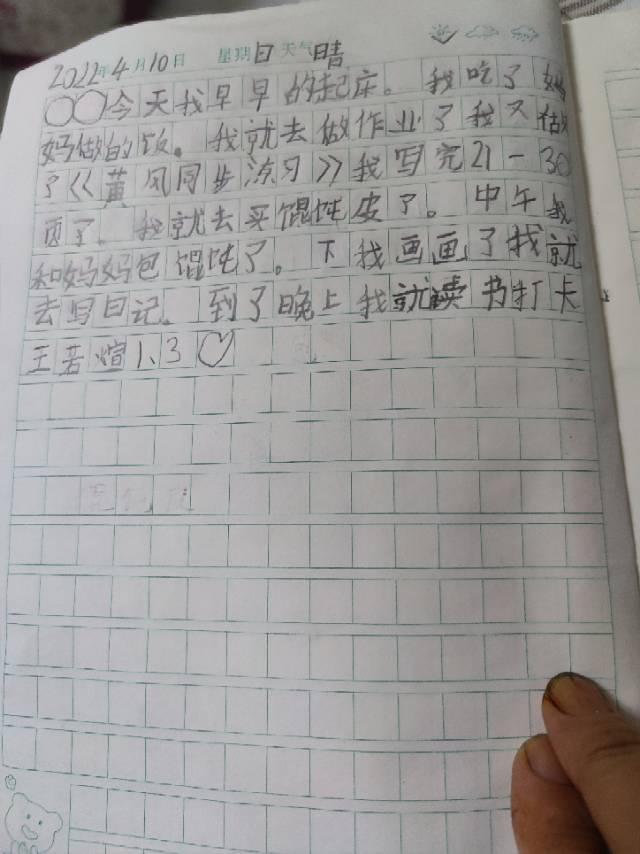 2022年4月10日 星期日 天气晴
○○今天我早早的起床。我吃了妈
妈做的饭。我就去做作业了我又做
了《黄冈同步练习》我写完21-30
页了。我就去买馄饨皮了。中午我
和妈妈包馄饨了。下我画画了我就
去写日记。到了晚上我就读书打卡
王若煊1、3♡